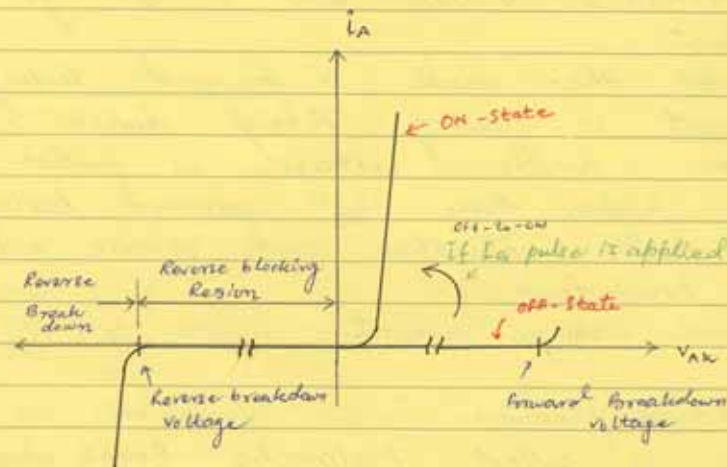 iA
ON-State
Off-to-ON
If IG pulse is applied
Reverse blocking
Region
Reverse
Break
down
OFF-State
VAK
Reverse breakdown
voltage
Forward Breakdown
voltage